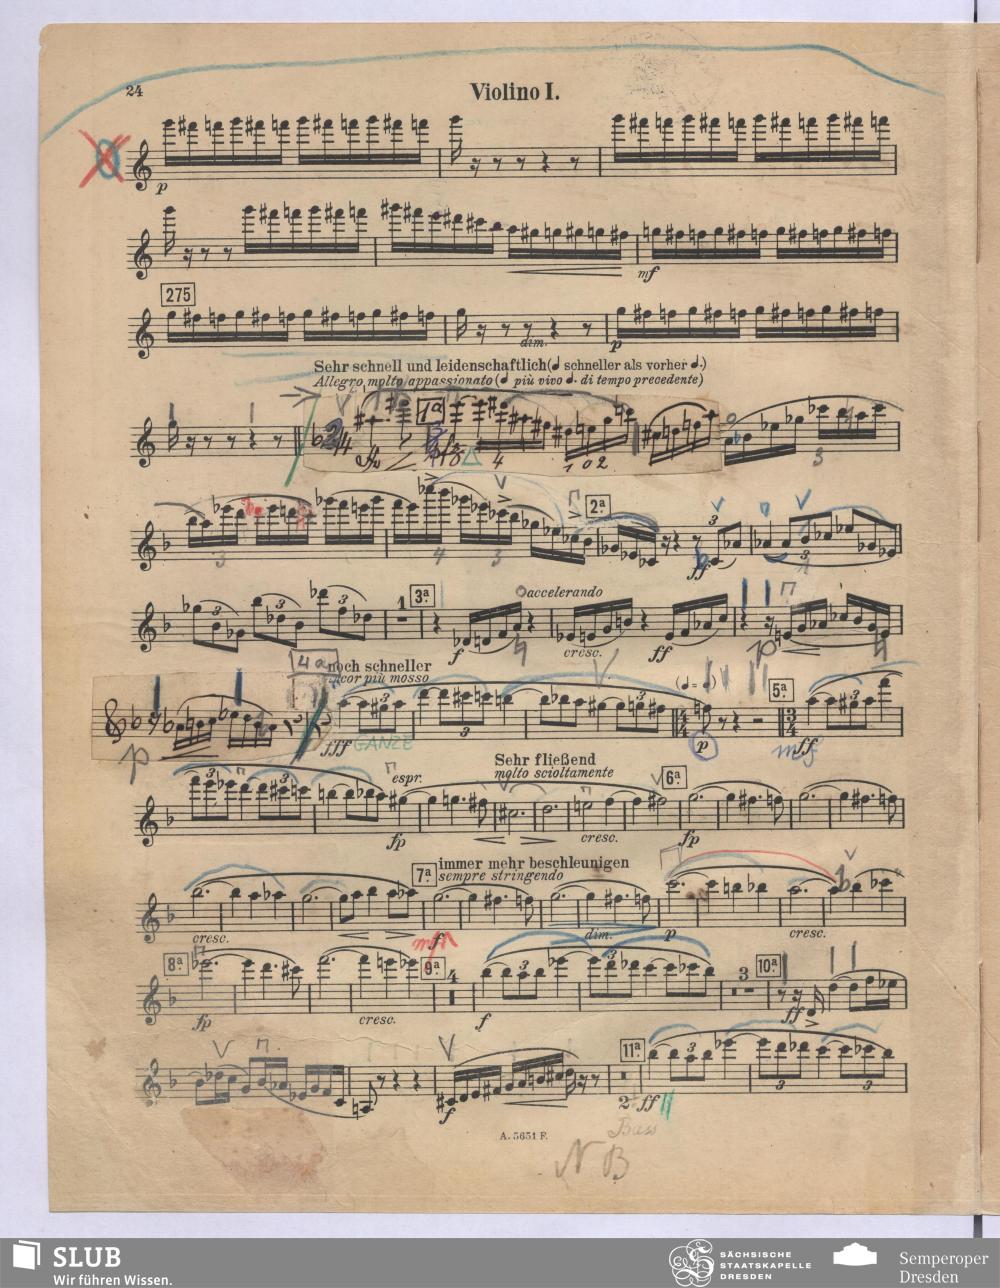 24
Violino I.
p
mf
275
dim.
p
Sehr schnell und leidenschaftlich (♩ schneller als vorher ♩.)
Allegro molto appassionato (♩ più vivo ♩. di tempo precedente)
1ª
2/4
4
1 0 2
3
2ª
3
3
4
3
ff
3
3 3 3
1
3ª
accelerando
f
cresc.
ff
p
4a
noch schneller
cor più mosso
p
fff
GANZE
3
3
3
p
5ª
mf
ff
3
Sehr fließend
molto scioltamente
espr.
6ª
fp
cresc.
fp
7ª
immer mehr beschleunigen
sempre stringendo
cresc.
f
dim.
p
cresc.
8ª
9ª
4
3
3
3
10ª
fp
cresc.
f
ff
11ª
3
f
2
ff
3
3
Bass
A. 5651 F.
NB
SLUB
Wir führen Wissen.
SÄCHSISCHE
STAATSKAPELLE
DRESDEN
Semperoper
Dresden